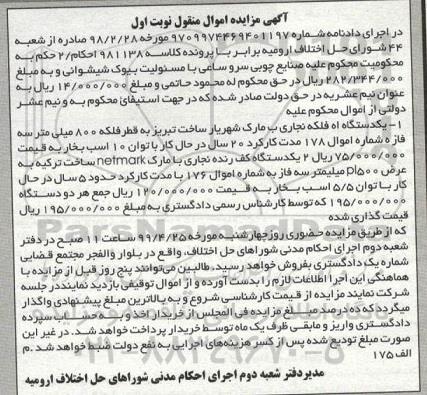 آگهی مزایده اموال منقول نوبت اول
در اجرای دادنامه شماره ۹۷۰۹۹۷۴۴۶۹۴۰۱۱۹۷ مورخه ۹۸/۲/۲۸ صادره از شعبه
۴۴ شورای حل اختلاف ارومیه برابر با پرونده کلاسه ۹۸۱۱۳۸ احکام/۲ حکم به
محکومیت محکوم علیه صنایع چوبی سرو ساعی با مسئولیت بیوک شیشوانی و به مبلغ
۲۸۲/۳۴۴/۰۰۰ ریال در حق محکوم له محمود حاتمی و مبلغ ۱۴/۰۰۰/۰۰۰ ریال به
عنوان نیم عشریه در حق دولت صادر شده که در جهت استیفای محکوم به و نیم عشر
دولتی از اموال محکوم علیه
۱- یکدستگاه اه فلکه نجاری ب مارک شهریار ساخت تبریز به قطر فلکه ۸۰۰ میلی متر سه
فاز ه شماره اموال ۱۷۸ مدت کارکرد ۲۰ سال در حال کار با توان ۱۰ اسب بخار به قیمت
۷۵/۰۰۰/۰۰۰ ریال ۲ یکدستگاه کف رنده نجاری با مارک netmark ساخت ترکیه به
عرض pl۵۰۰ میلیمتر سه فاز به شماره اموال ۱۷۶ با مدت کارکرد حدود ۵ سال در حال
کار با توان ۵/۵ اسب بخار به قیمت ۱۲۰/۰۰۰/۰۰۰ ریال جمع هر دو دستگاه
۱۹۵/۰۰۰/۰۰۰ که توسط کارشناس رسمی دادگستری به مبلغ ۱۹۵/۰۰۰/۰۰۰ ریال
قیمت گذاری شده
که از طریق مزایده حضوری روز چهارشنبه مورخه ۹۹/۴/۲۵ ساعت ۱۱ صبح در دفتر
شعبه دوم اجرای احکام مدنی شوراهای حل اختلاف، واقع در بلوار والفجر مجتمع قضایی
شماره یک دادگستری بفروش خواهد رسید. طالبین می‌توانند پنج روز قبل از مزایده با
هماهنگی این اجرا اطلاعات لازم را بدست آورده و از اموال توقیفی بازدید نمایند در جلسه
شرکت نمایند مزایده از قیمت کارشناسی شروع و به بالاترین مبلغ پیشنهادی واگذار
میگردد که ده درصد مبلغ مزایده فی المجلس از خریدار اخذ و به حساب سپرده
دادگستری واریز و مابقی ظرف یک ماه توسط خریدار پرداخت خواهد شد. در غیر این
صورت مبلغ تودیع شده پس از کسر هزینه‌های اجرایی به نفع دولت ضبط خواهد شد. م
الف ۱۷۵
مدیر دفتر شعبه دوم اجرای احکام مدنی شوراهای حل اختلاف ارومیه